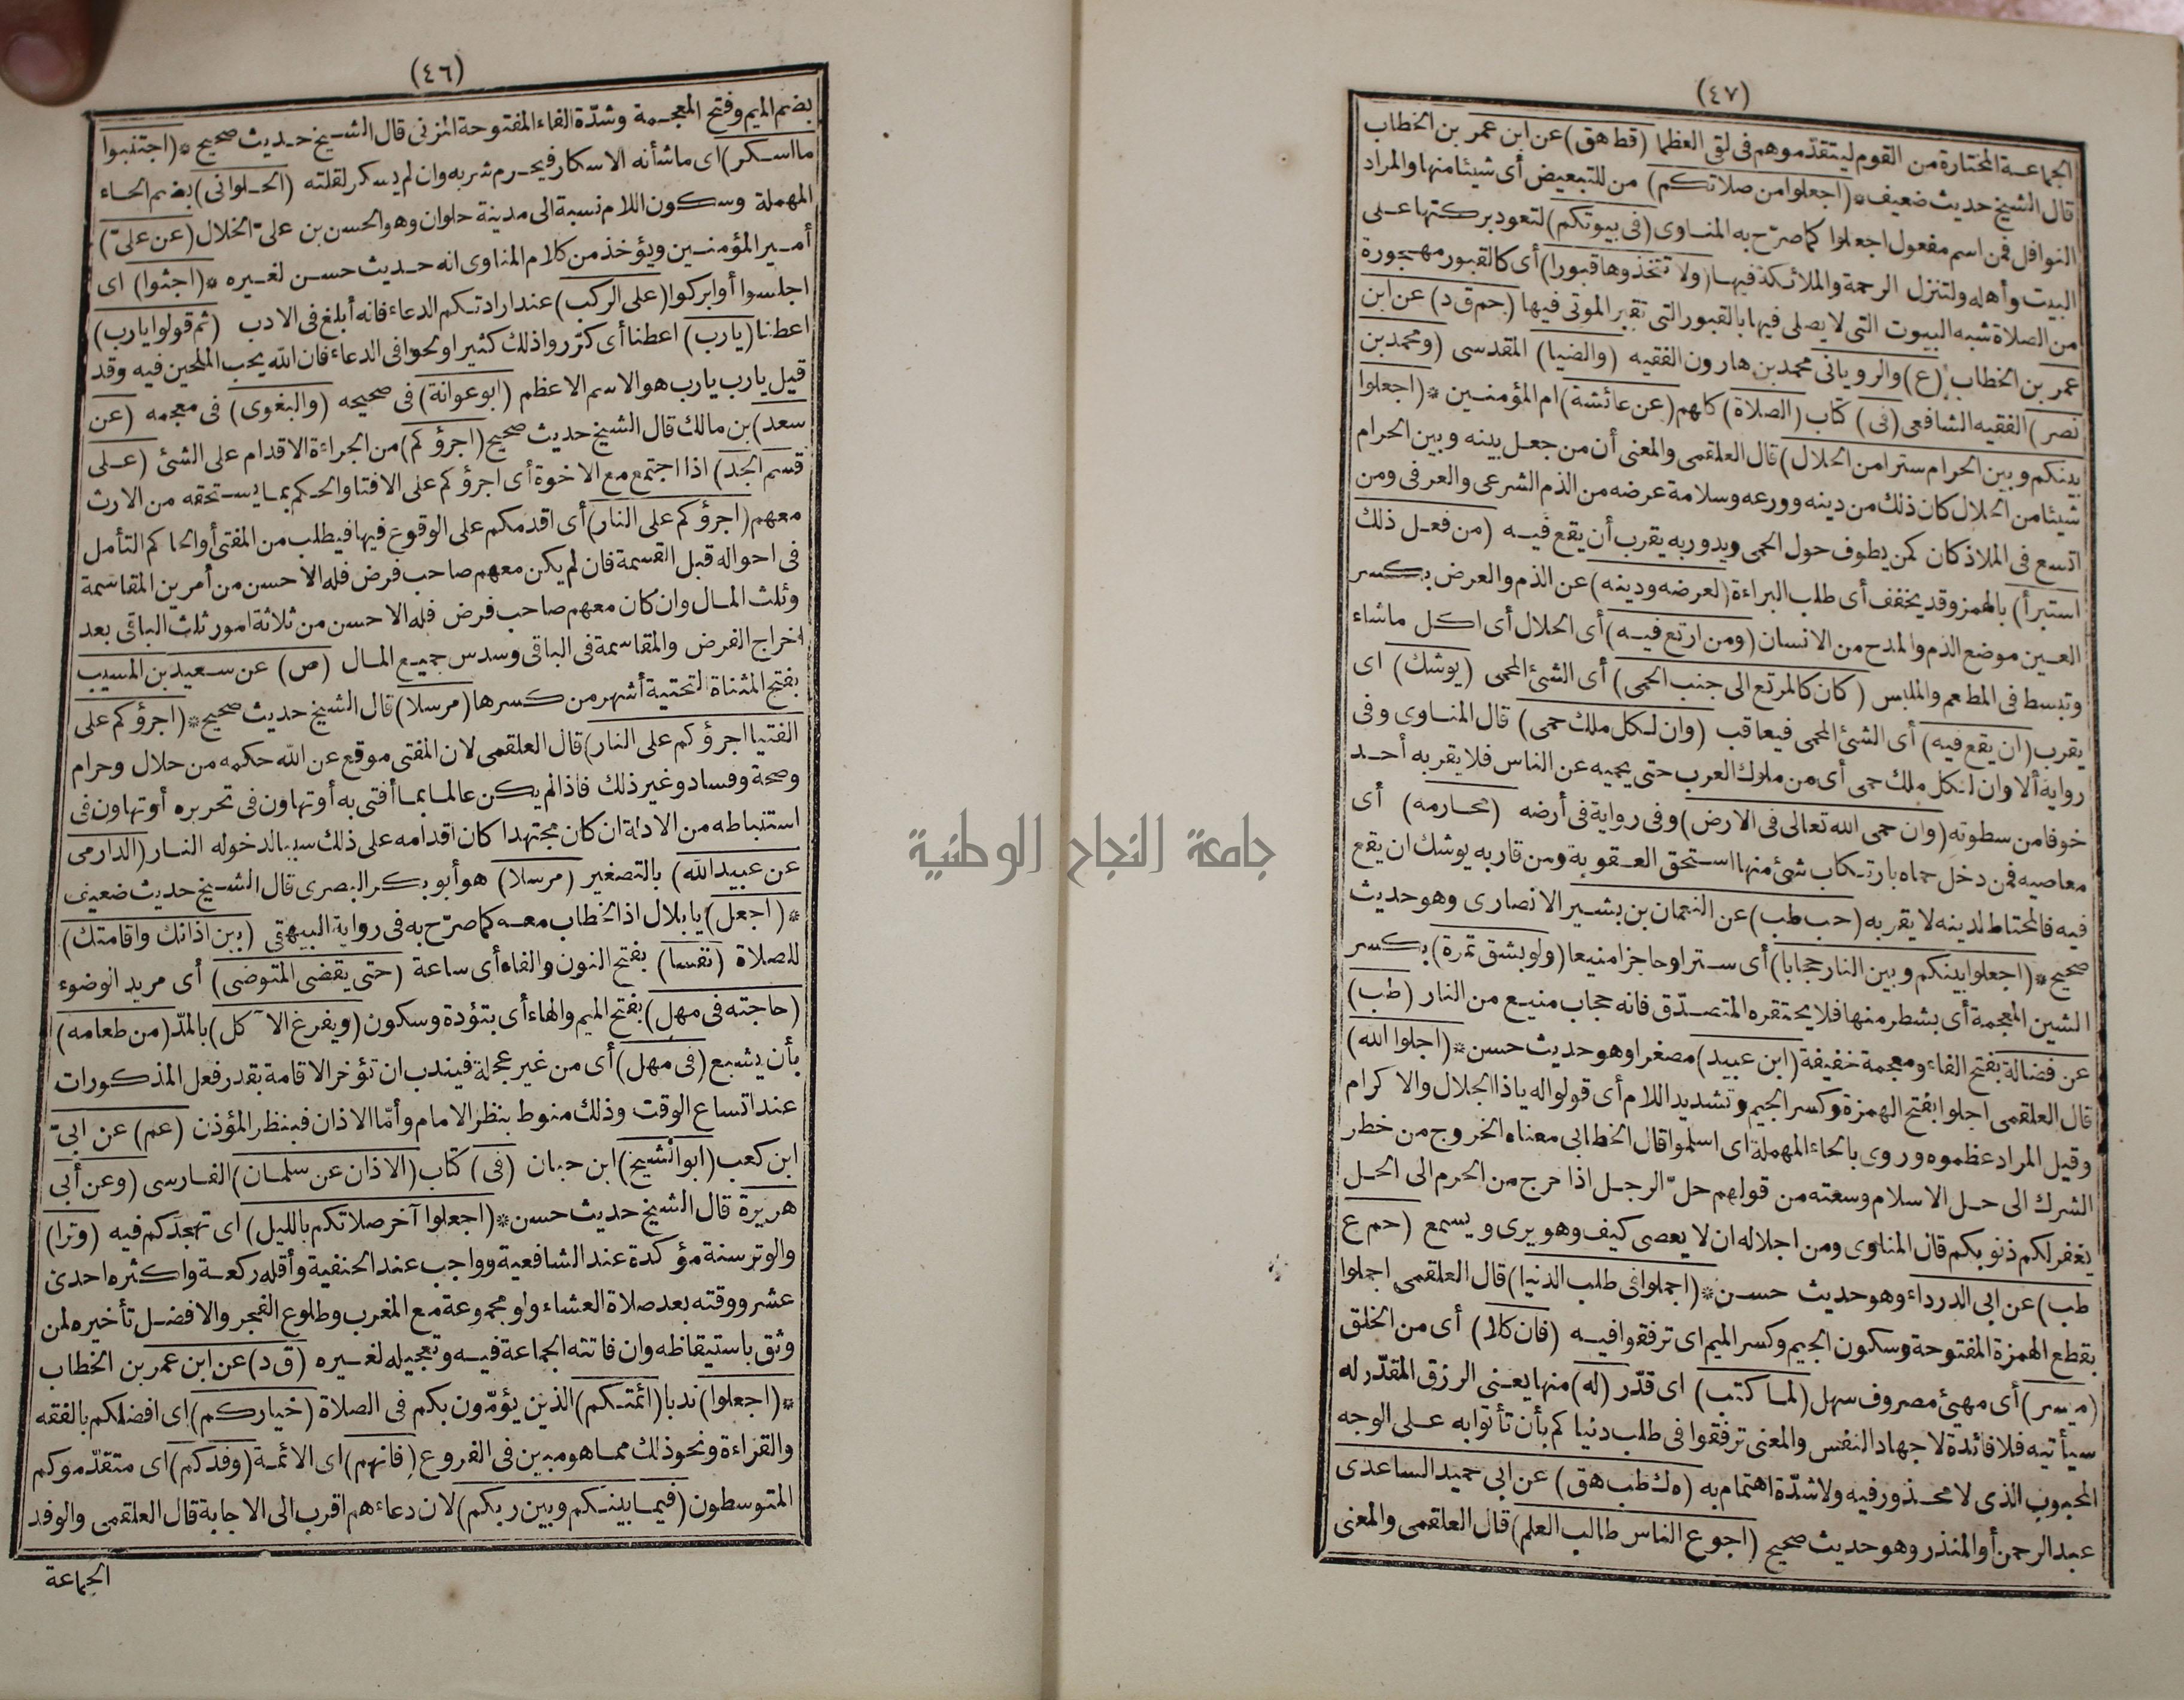 (٤٦)
بضم الميم وفتح المعجمة وشدّة الفاء المفتوحة المزنى قال الشيخ حديث صحيح *(اجتنبوا
ما اسكر) اى ما شأنه الاسكار فيحرم شربه وان لم يسكر لقلته (الحلوانى) بضم الحاء
المهملة وسكون اللام نسبة الى مدينة حلوان وهو الحسن بن علىّ الخلال (عن علىّ)
أمير المؤمنين ويؤخذ من كلام المناوى انه حديث حسن لغيره *(اجثوا) اى
اجلسوا أو ابركوا (على الركب) عند ارادتكم الدعاء فانه أبلغ فى الادب (ثم قولوا يارب)
اعطنا (يارب) اعطنا أى كرّروا ذلك كثيرا وألحوا فى الدعاء فان الله يحب الملحين فيه وقد
قيل يارب يارب هو الاسم الاعظم (ابو عوانة) فى صحيحه (والبغوى) فى معجمه (عن
سعد) بن مالك قال الشيخ حديث صحيح (اجرؤكم) من الجراءة الاقدام على الشئ (على
قسم الجد) اذا اجتمع مع الاخوة أى اجرؤكم على الافتا والحكم بما يستحقه من الارث
معهم (اجرؤكم على النار) أى اقدمكم على الوقوع فيها فيطلب من المفتى أو الحاكم التأمل
فى احواله قبل القسمة فان لم يكن معهم صاحب فرض فله الاحسن من أمرين المقاسمة
وثلث المال وان كان معهم صاحب فرض فله الاحسن من ثلاثة امور ثلث الباقى بعد
اخراج الفرض والمقاسمة فى الباقى وسدس جميع المال (ص) عن سعيد بن المسيب
بفتح المثناة التحتية أشهر من كسرها (مرسلا) قال الشيخ حديث صحيح *(اجرؤكم على
الفتيا اجرؤكم على النار) قال العلقمى لان المفتى موقع عن الله حكمه من حلال وحرام
وصحة وفساد وغير ذلك فاذا لم يكن عالما بما أفتى به أو تهاون فى تحريره أو تهاون فى
استنباطه من الادلة ان كان مجتهدا كان اقدامه على ذلك سببا لدخوله النار (الدارمى
عن عبيد الله) بالتصغير (مرسلا) هو أبو بكر البصرى قال الشيخ حديث ضعيف
*(اجعل) يا بلال اذ الخطاب معه كما صرّح به فى رواية البيهقى (بين اذانك واقامتك)
للصلاة (نفسا) بفتح النون والفاء أى ساعة (حتى يقضى المتوضى) أى مريد الوضوء
(حاجته فى مهل) بفتح الميم والهاء أى بتؤدة وسكون (ويفرغ الآكل) بالمدّ (من طعامه)
بأن يشبع (فى مهل) أى من غير عجلة فيندب ان تؤخر الاقامة بقدر فعل المذكورات
عند اتساع الوقت وذلك منوط بنظر الامام وأمّا الاذان فبنظر المؤذن (عم) عن ابىّ
ابن كعب (ابو الشيخ) ابن حبان (فى) كتاب (الاذان عن سلمان) الفارسى (وعن أبى
هريرة قال الشيخ حديث حسن *(اجعلوا آخر صلاتكم بالليل) اى تهجدكم فيه (وترا)
والوتر سنة مؤكدة عند الشافعية وواجب عند الحنفية وأقله ركعة واكثره احدى
عشر ووقته بعد صلاة العشاء ولو مجموعة مع المغرب وطلوع الفجر والافضل تأخيره لمن
وثق باستيقاظه وان فاتته الجماعة فيه وتعجيله لغيره (ق د) عن ابن عمر بن الخطاب
*(اجعلوا) ندبا (ائمتكم) الذين يؤمّون بكم فى الصلاة (خياركم) اى افضلكم بالفقه
والقراءة ونحو ذلك مما هو مبين فى الفروع (فانهم) اى الائمة (وفدكم) اى متقدّموكم
المتوسطون (فيما بينكم وبين ربكم) لان دعاءهم اقرب الى الاجابة قال العلقمى والوفد
الجماعة
(٤٧)
الجماعة المختارة من القوم ليتقدّموهم فى لقى العظما (قط هق) عن ابن عمر بن الخطاب
قال الشيخ حديث ضعيف *(اجعلوا من صلاتكم) من للتبعيض أى شيئا منها والمراد
النوافل فمن اسم مفعول اجعلوا كما صرّح به المناوى (فى بيوتكم) لتعود بركتها على
البيت وأهله ولتنزل الرحمة والملائكة فيها (ولا تتخذوها قبورا) أى كالقبور مهجورة
من الصلاة شبه البيوت التى لا يصلى فيها بالقبور التى تقبر الموتى فيها (حم ق د) عن ابن
عمر بن الخطاب (ع) والرويانى محمد بن هارون الفقيه (والضيا) المقدسى (ومحمد بن
نصر) الفقيه الشافعى (فى) كتاب (الصلاة) كلهم (عن عائشة) ام المؤمنين *(اجعلوا
بينكم وبين الحرام سترا من الحلال) قال العلقمى والمعنى أن من جعل بينه وبين الحرام
شيئا من الحلال كان ذلك من دينه وورعه وسلامة عرضه من الذم الشرعى والعرفى ومن
اتسع فى الملاذ كان كمن يطوف حول الحمى ويدور به يقرب أن يقع فيه (من فعل ذلك
استبرأ) بالهمز وقد يخفف أى طلب البراءة (لعرضه ودينه) عن الذم والعرض بكسر
العين موضع الذم والمدح من الانسان (ومن ارتع فيه) أى الحلال أى اكل ماشاء
وتبسط فى المطعم والملبس (كان كالمرتع الى جنب الحمى) أى الشئ المحمى (يوشك) اى
يقرب (ان يقع فيه) أى الشئ المحمى فيعاقب (وان لكل ملك حمى) قال المناوى وفى
رواية ألا وان لكل ملك حمى أى من ملوك العرب حتى يحميه عن الناس فلا يقربه أحد
خوفا من سطوته (وان حمى الله تعالى فى الارض) وفى رواية فى أرضه (محارمه) أى
معاصيه فمن دخل حماه بارتكاب شئ منها استحق العقوبة ومن قاربه يوشك ان يقع
فيه فالمحتاط لدينه لا يقربه (حب طب) عن النعمان بن بشير الانصارى وهو حديث
صحيح *(اجعلوا بينكم وبين النار حجابا) أى ستر او حاجزا منيعا (ولو بشق تمرة) بكسر
الشين المعجمة أى بشطر منها فلا يحتقره المتصدّق فانه حجاب منيع من النار (طب)
عن فضالة بفتح الفاء ومعجمة خفيفة (ابن عبيد) مصغرا وهو حديث حسن *(اجلوا الله)
قال العلقمى اجلوا بفتح الهمزة وكسر الجيم وتشديد اللام أى قولوا له ياذا الجلال والاكرام
وقيل المراد عظموه وروى بالحاء المهملة اى اسلموا قال الخطابى معناه الخروج من خطر
الشرك الى حل الاسلام وسعته من قولهم حلّ الرجل اذا خرج من الحرم الى الحل
يغفر لكم ذنوبكم قال المناوى ومن اجلاله ان لا يعصى كيف وهو يرى ويسمع (حم ع
طب) عن ابى الدرداء وهو حديث حسن *(اجملوا فى طلب الدنيا) قال العلقمى اجملوا
بقطع الهمزة المفتوحة وسكون الجيم وكسر الميم اى ترفقوا فيه (فان كلا) أى من الخلق
(ميسر) أى مهيئ مصروف سهل (لما كتب) اى قدّر (له) منها يعنى الرزق المقدّر له
سيأتيه فلا فائدة لاجهاد النفس والمعنى ترفقوا فى طلب دنياكم بأن تأتوا به على الوجه
المحبوب الذى لا محذور فيه ولا شدّة اهتمام به (ه ك طب هق) عن ابى حميد الساعدى
عبد الرحمن أو المنذر وهو حديث صحيح (اجوع الناس طالب العلم) قال العلقمى والمعنى
جامعة النجاح الوطنية